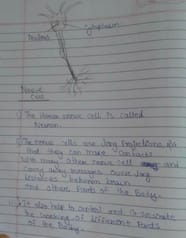 Nucleus
Cytoplasm
Nerve
Cell
i) The Human nerve cell is called
Neuron.
ii) The nerve cells are long projections so
that they can make contacts
with many other nerve cell and
carry messages over long
between brain
and other Parts of the Body.
iii) It also help to control and
the working of different Parts
of the Body.